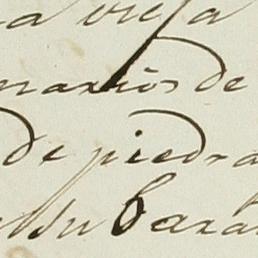 a vieja
marios de
de piedra
su bara